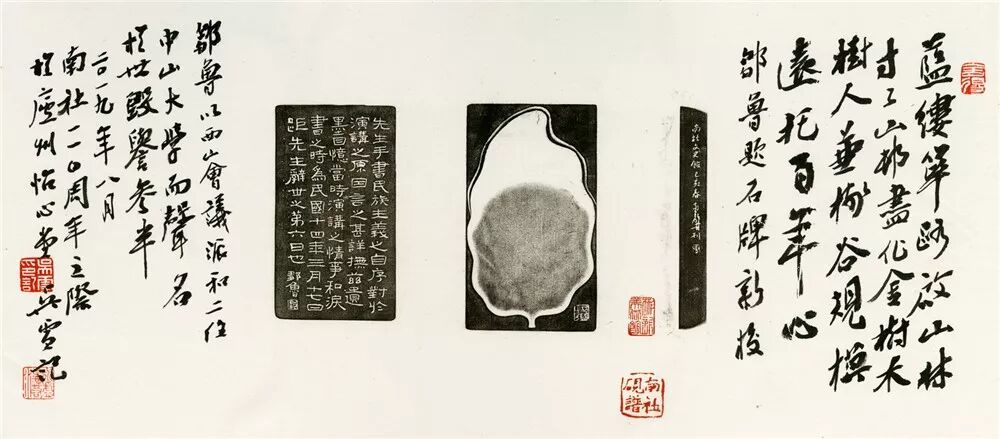 藍縷篳路啟山林
寸寸山村盡化金樹木
樹人兼樹谷規模
遠托百年心
鄒魯題石牌新校
南社硯譜
先生手書民族主義之自序對於
演講之原因言之甚詳撫茲遺
墨回憶當時演講之情事和淚
書之時為民國十四年三月十七日
距先生辭世之第六日也 鄒魯
鄒魯以西山會議派和二任
中山大學而聲名
於世毀譽參半
二〇一九年八月
南社一一〇周年之際
於廬州怡心堂吳雪記